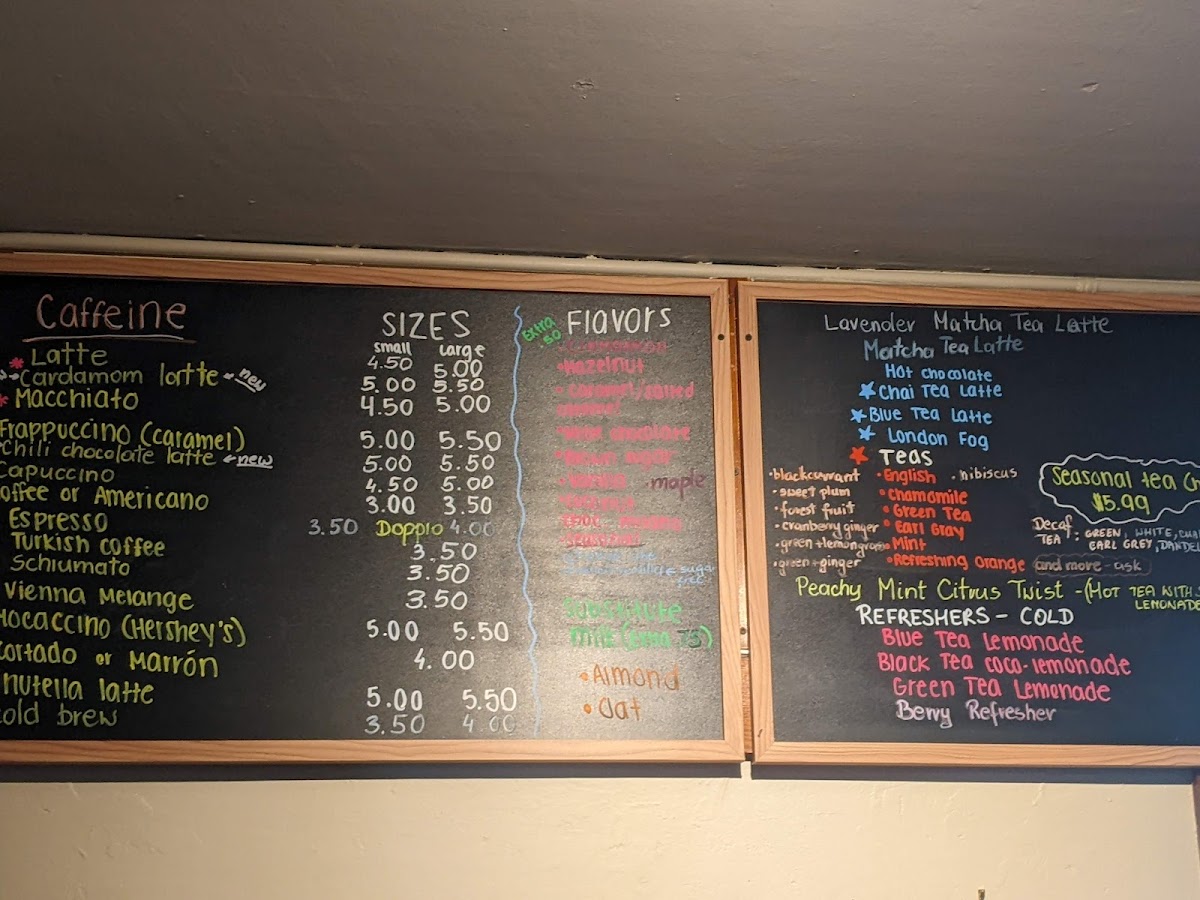 Caffeine
SIZES
small large
Latte 4.50 5.00
Cardamom lartte new 5.00 5.50
Macchiato 4.50 5.00
Frappuccino (caramel) 5.00 5.50
Chili chocolate latte new 5.00 5.50
Capuccino 4.50 5.00
offee or Americano 3.00 3.50
Espresso 3.50 Doppio 4.00
Turkish coffee 3.50
Schiumato 3.50
Vienna Melange 3.50
Mocaccino (Hershey's) 5.00 5.50
Cortado or Marrón 4.00
nutella latte 5.00 5.50
cold brew 3.50 4.00
Extra .50
Flavors
Hazelnut
caramel/salted
caramel
Brown sugar
maple
sugar
free
Substitute
Milk (extra .75)
Almond
Oat
Lavender Matcha Tea Latte
Matcha Tea Latte
Hot chocolate
Chai Tea Latte
Blue Tea Latte
London Fog
TEAS
blackcurrant
sweet plum
forest fruit
cranberry ginger
green+lemongrass
green+ginger
English
chamomile
Green Tea
Earl Gray
Mint
Refreshing Orange
hibiscus
and more - ask
Seasonal tea
$5.99
Decaf
TEA : GREEN, WHITE,
EARL GREY,
Peachy Mint Citrus Twist - (HOT TEA WITH
LEMONADE
REFRESHERS - COLD
Blue Tea Lemonade
Black Tea coco-lemonade
Green Tea Lemonade
Berry Refresher